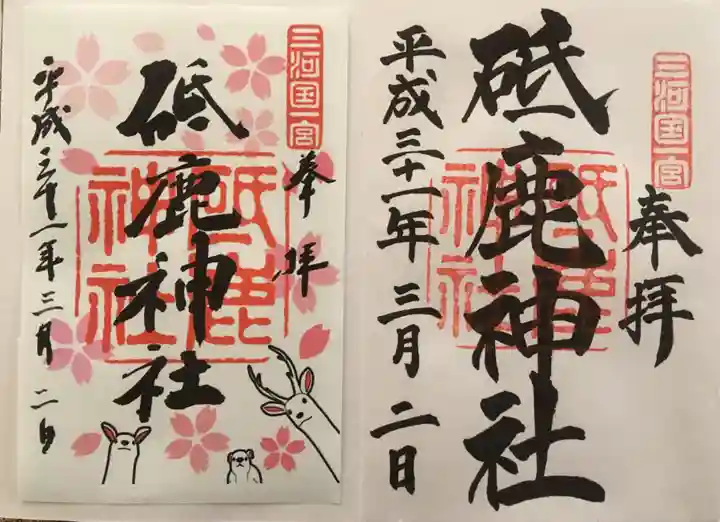 三河国一宮
奉拝
砥鹿神社
砥鹿
神社
平成三十一年三月二日
三河国一宮
奉拝
砥鹿神社
砥鹿
神社
平成三十一年三月二日